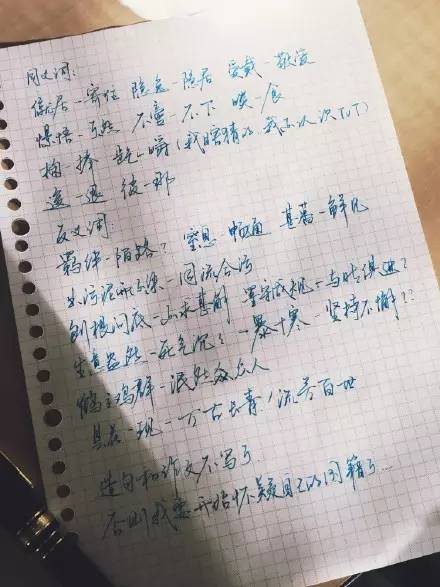 同义词:
僦居-寄住 隐逸-隐居 爱戴-敬爱
憬悟-了然 不啻-不下 啖-食
掬-捧 龁-嚼(我瞎猜的,我不认识TUT)
逡-退 彼-那
反义词:
羁绊-陌路? 窒息-畅通 甚蕃-鲜见
出污泥而不染-同流合污
刨根问底-不求甚解 墨守成规-与时俱进?
生意盎然-死气沉沉 一暴十寒-坚持不懈??
鹤立鸡群-泯然众人
昙花一现-万古长青/流芳百世
造句和作文不写了
否则我要开始怀疑自己的国籍了...